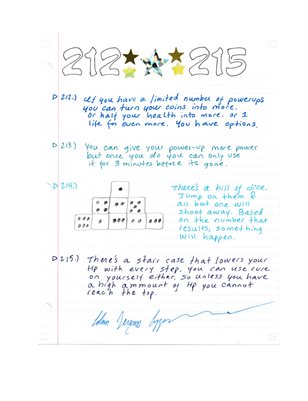 212 215
D 212.) If you have a limited number of powerups
you can turn your coins into more.
Or half your health into more. or 1
life for even more. You have options.
D 213.) You can give your power-up more power
but once you do you can only use
it for 3 minutes before its gone.
D 214.) There's a hill of dice.
Jump on them &
all but one will
shoot away. Based
on the number that
results, something
will happen.
D 215.) There's a stair case that lowers your
HP with every step. you can use cure
on yourself either. So unless you have
a high ammount of HP you cannot
reach the top.